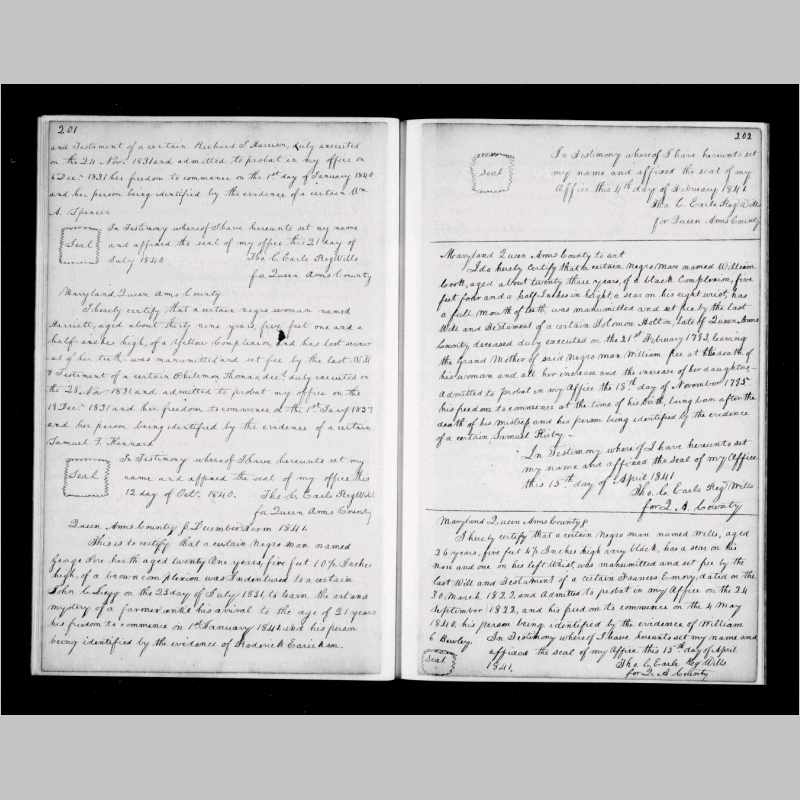 201
and Testiment of a certain Richard T Harrison, duly executed
on the 24 Nov. 1831 and admitted to probat in my office on
6 Decr 1831 her freedom to commence on the 1st day of January 1840
and her person being identified by the evidence of a certain Wm
A. Spencer
In Testimony whereof I have hereunto set my name
Seal and affixed the seal of my office this 21 day of
July 1840. Tho C Earle Reg Wills
for Queen Anns County
Maryland Queen Anns County
I hereby certify that a certain negro woman named
Harriett, aged about thirty nine years, five feet one and a
half inches high, of a Yellow Complexion and has lost
of her teeth was manumitted and set fee by the last Will
& Testiment of a certain Philemon Thomas duly executed on
the 28 Nov 1831 and admitted to probat my office on the
19 Decr 1831 and her freedom to commence on the 1st Jany 1837
and her person being identified by the evidence of a certain
Samuel T. Harrard
In Testimony whereof I have hereunto set my
Seal name and affixed the seal of my office this
12 day of Oct. 1840. Tho C Earle Reg Wills
for Queen Anns County
Queen Anns County December Term 1841.
This is to certify that a certain negro man named
George aged twenty One years, five feet 10 1/2 Inches
high, of a brown complexion was Indentured to a certain
John C on the 23 day of July 1831, to learn the art and
mystery of a farmer until his arival to the age of 21 years
his freedom to commence on 1st January 1841 and his person
being identified by the evidence of Frederick
202
In Testimony whereof I have hereunto set
Seal my name and affixed the seal of my
Office this 4th day of February 1841
Tho C Earle Reg Wills
for Queen Anns County
Maryland Queen Anns County to wit
I do hereby Certify that a certain Negro Man named William
Cook, aged about twenty three years, of a black Complexion, five
feet four and a half Inches in height, a scar on his right wrist, has
a full mouth of teeth, was manumitted and set free by the last
Will and Testament of a certain Solomon late of Queen Anns
County deceased duly executed on the 21st February 1792, leaving
the Grand Mother of said Negro man William free at the death of
his woman and all her increase and the increase of her daughter
Admitted to Probat in my Office the 18th day of November 1795
his freedom to commence at the time of his birth, being born after the
death of his Mistress and his person being identified by the evidence
of a certain Samuel Kirby
In Testimony whereof I have hereunto set
my name and affixed the seal of my Office
this 15th day of April 1841
Tho. C. Earle Reg Wills
for Q. A. County
Maryland Queen Anns County
I hereby certify that a certain Negro man named Wills, aged
26 years, five feet 4 1/2 Inches high very black, has a scar on his
nose and one on his left Wrist, was manumitted and set fee by the
last Will and Testament of a certain Frances Emory, dated on the
30 March 1822, and Admited to probat in my Office on the 24
September 1822, and his freedom to commence on the 4 May
1840, his person being identified by the evidence of William
C Bewley. In Testimony whereof I have hereunto set my name and
Seal affixed the seal of my Office this 15th day of April
1841. Tho. C Earle Reg Wills
for Q. A County